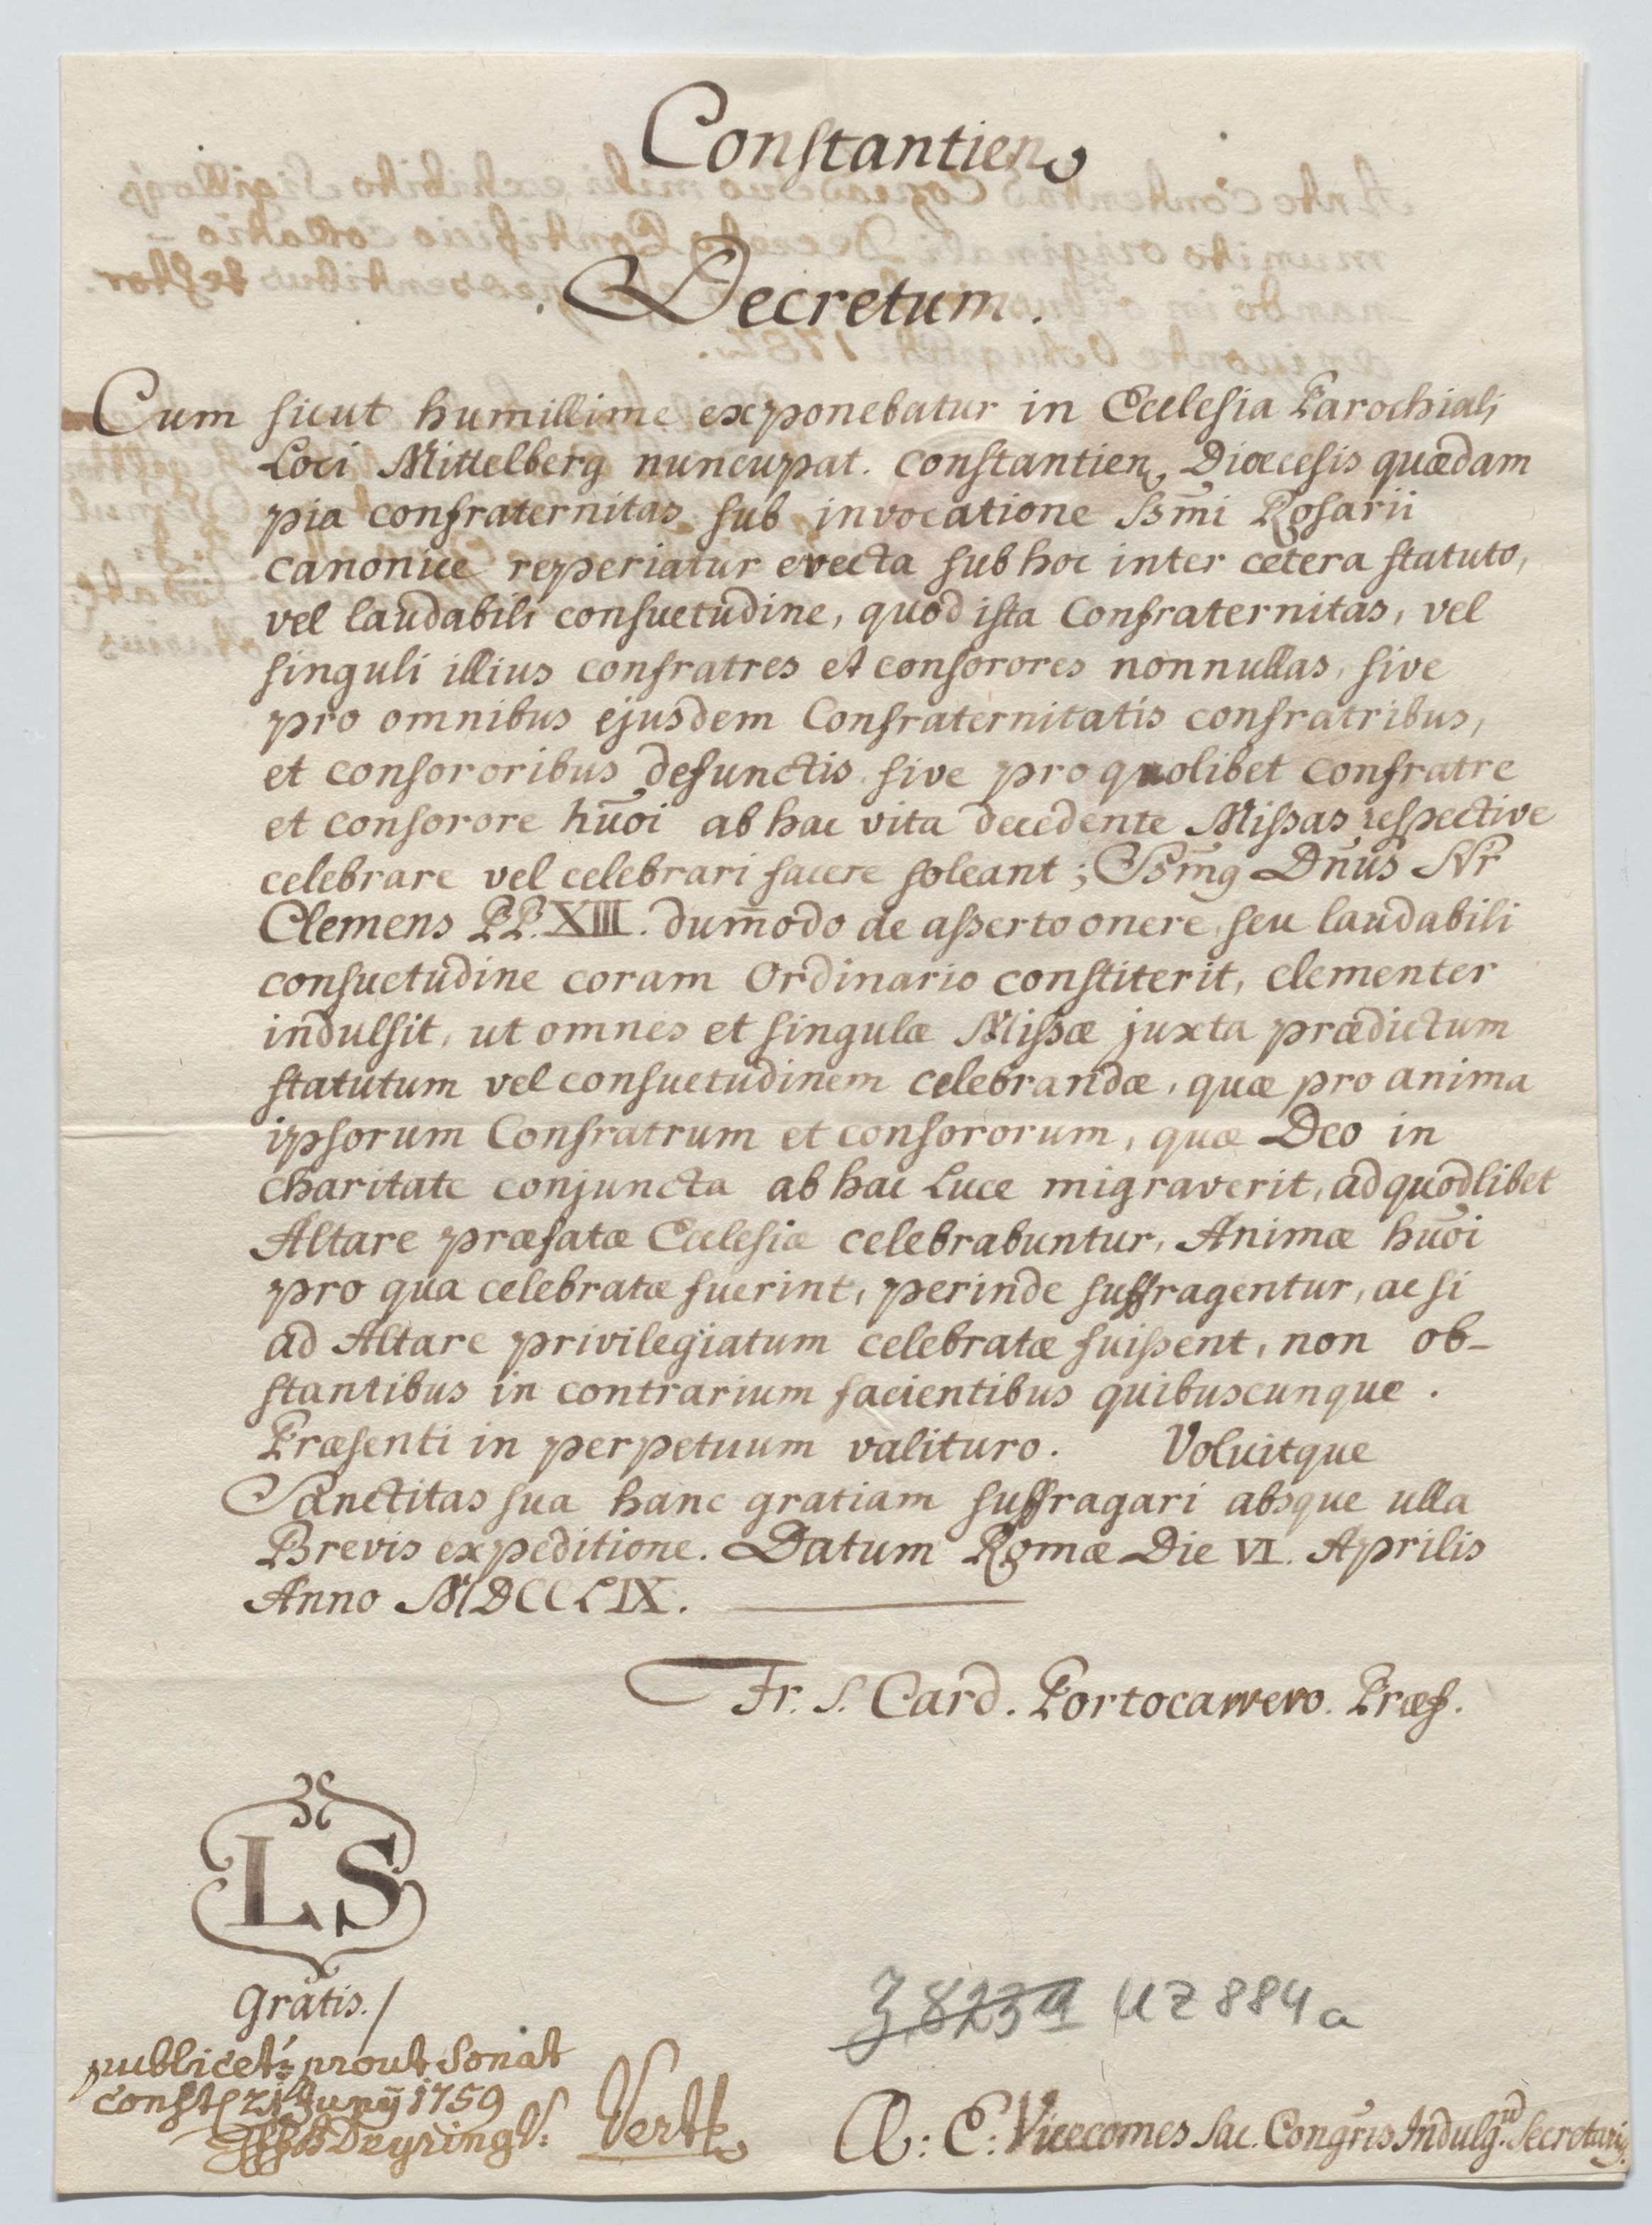 Constantien.
Decretum.
Cum sicut humillime exponebatur in Ecclesia Parochiali
Loci Mittelberg nuncupat. Constantien. Diœcesis quædam
pia confraternitas sub invocatione SSm̄i Rosarii
canonice reperiatur erecta sub hoc inter cetera statuto,
vel laudabili consuetudine, quod ista Confraternitas, vel
singuli illius confratres et consorores nonnullas, sive
pro omnibus ejusdem Confraternitatis confratribus,
et consororibus defunctis sive pro quolibet confratre
et consorore hūoi ab hac vita decedente Missas respective
celebrare vel celebrari facere soleant; SSm̄9 Dn̄us Nr̄
Clemens PP. XIII. dum̄odo de asserto onere, seu laudabili
consuetudine coram Ordinario constiterit, clementer
indulsit, ut omnes et singulæ Missæ juxta prædictum
statutum vel consuetudinem celebrandæ, quæ pro anima
ipsorum Confratrum et consororum, quæ Deo in
charitate conjuncta ab hac Luce migraverit, ad quodlibet
Altare præfatæ Ecclesiæ celebrabuntur, Animæ hūoi
pro qua celebratæ fuerint, perinde suffragentur, ac si
ad Altare privilegiatum celebratæ fuissent, non ob-
stantibus in contrarium facientibus quibuscunque.
Præsenti in perpetuum valituro. Voluitque
Sanctitas sua hanc gratiam suffragari absque ulla
Brevis expeditione. Datum Romæ Die VI. Aprilis
Anno MDCCLIX.
Fr. S. Card. Portocarrero. Præf.
LS
Gratis./
publicet: prout Sonat
21 Junÿ 1759
Deyring
UZ 884a
A: E: Vicecomes Sac. Congr̄is Indulg. Secretari9.